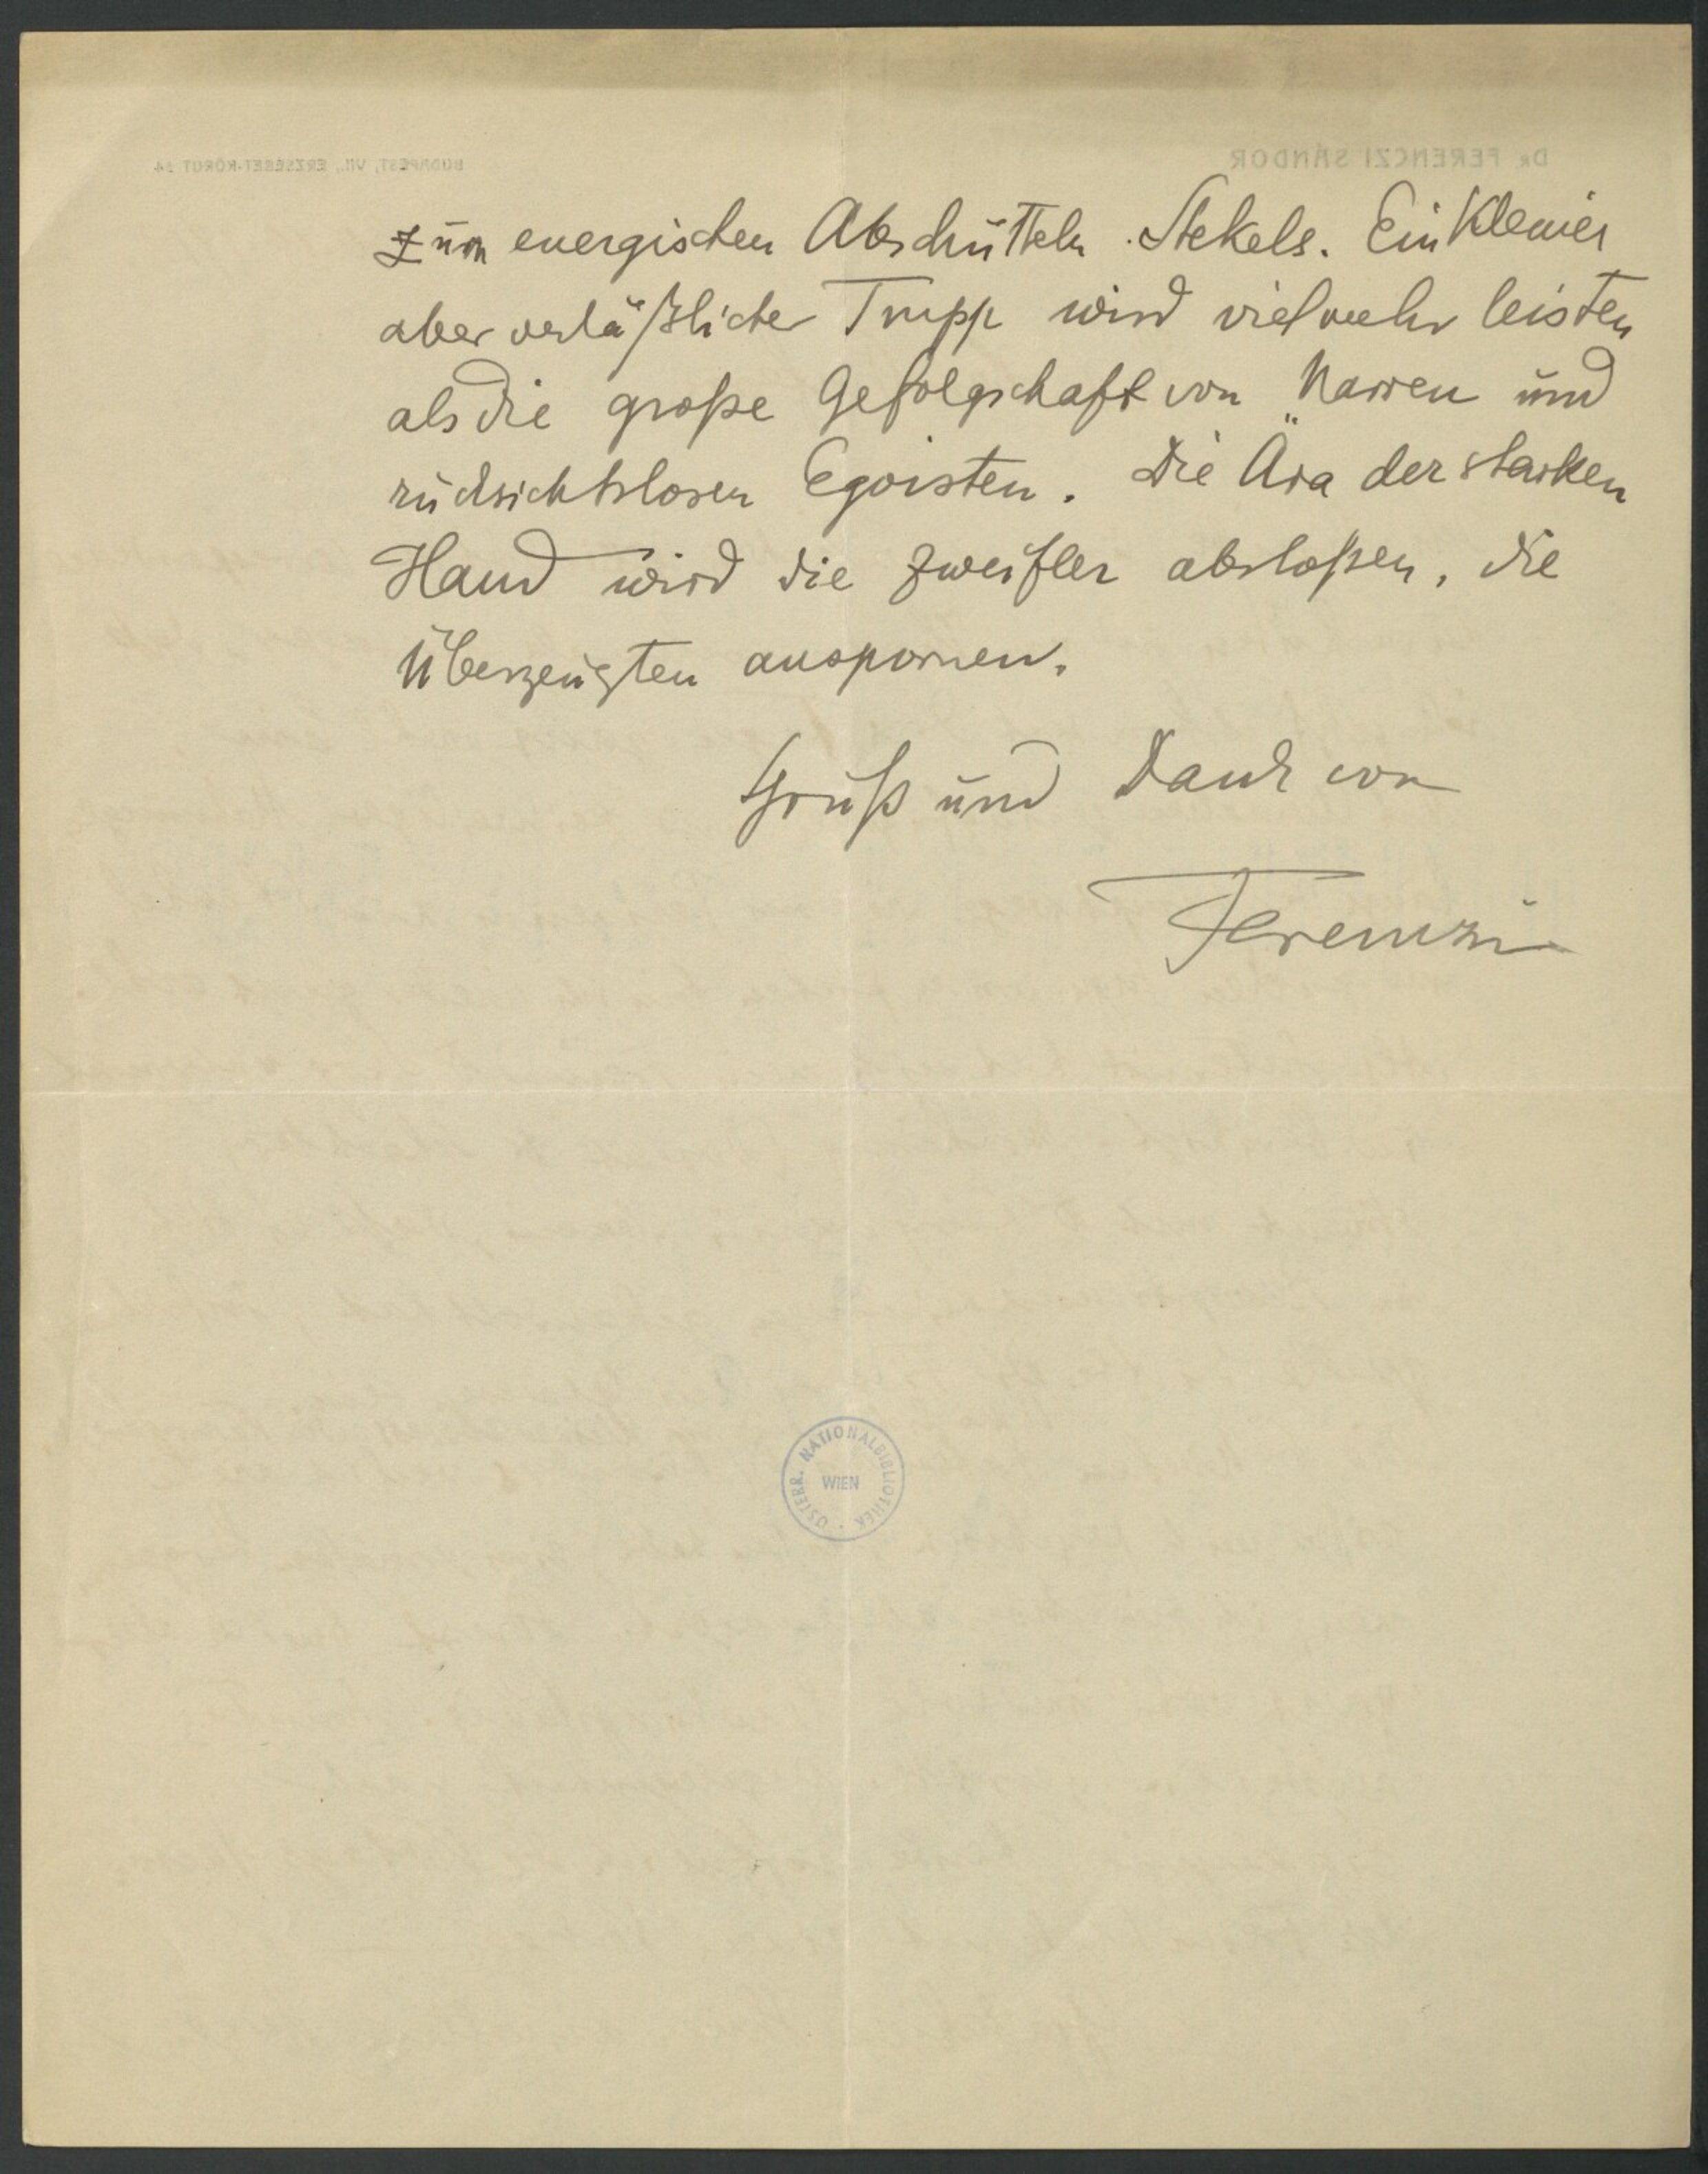 DR FERENCZI SÁNDOR
BUDAPEST, VII., ERZSÉBET-KÖRUT 54
zum energischen Abschütteln Stekels. Ein kleiner
aber verläßlicher Trupp wird viel mehr leisten
als die große Gefolgschaft von Narren und
rücksichtslosen Egoisten. Die Ära der starken
Hand wird die Zweifler abstoßen, die
Überzeugten anspornen.
Gruß und Dank von
Ferenczi
ÖSTERR. NATIONALBIBLIOTHEK
WIEN